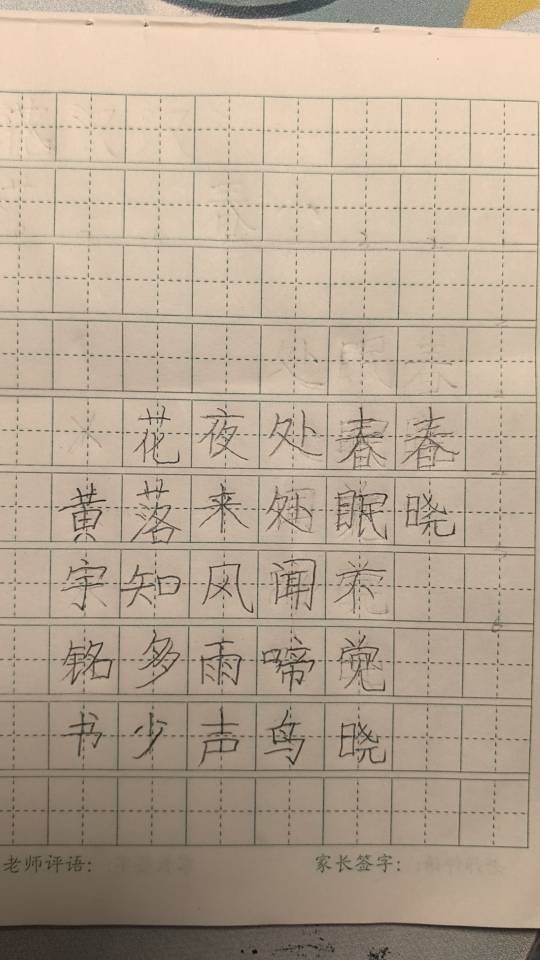 春晓
春眠不觉晓
处处闻啼鸟
夜来风雨声
花落知多少
黄宇铭书
老师评语：
家长签字：